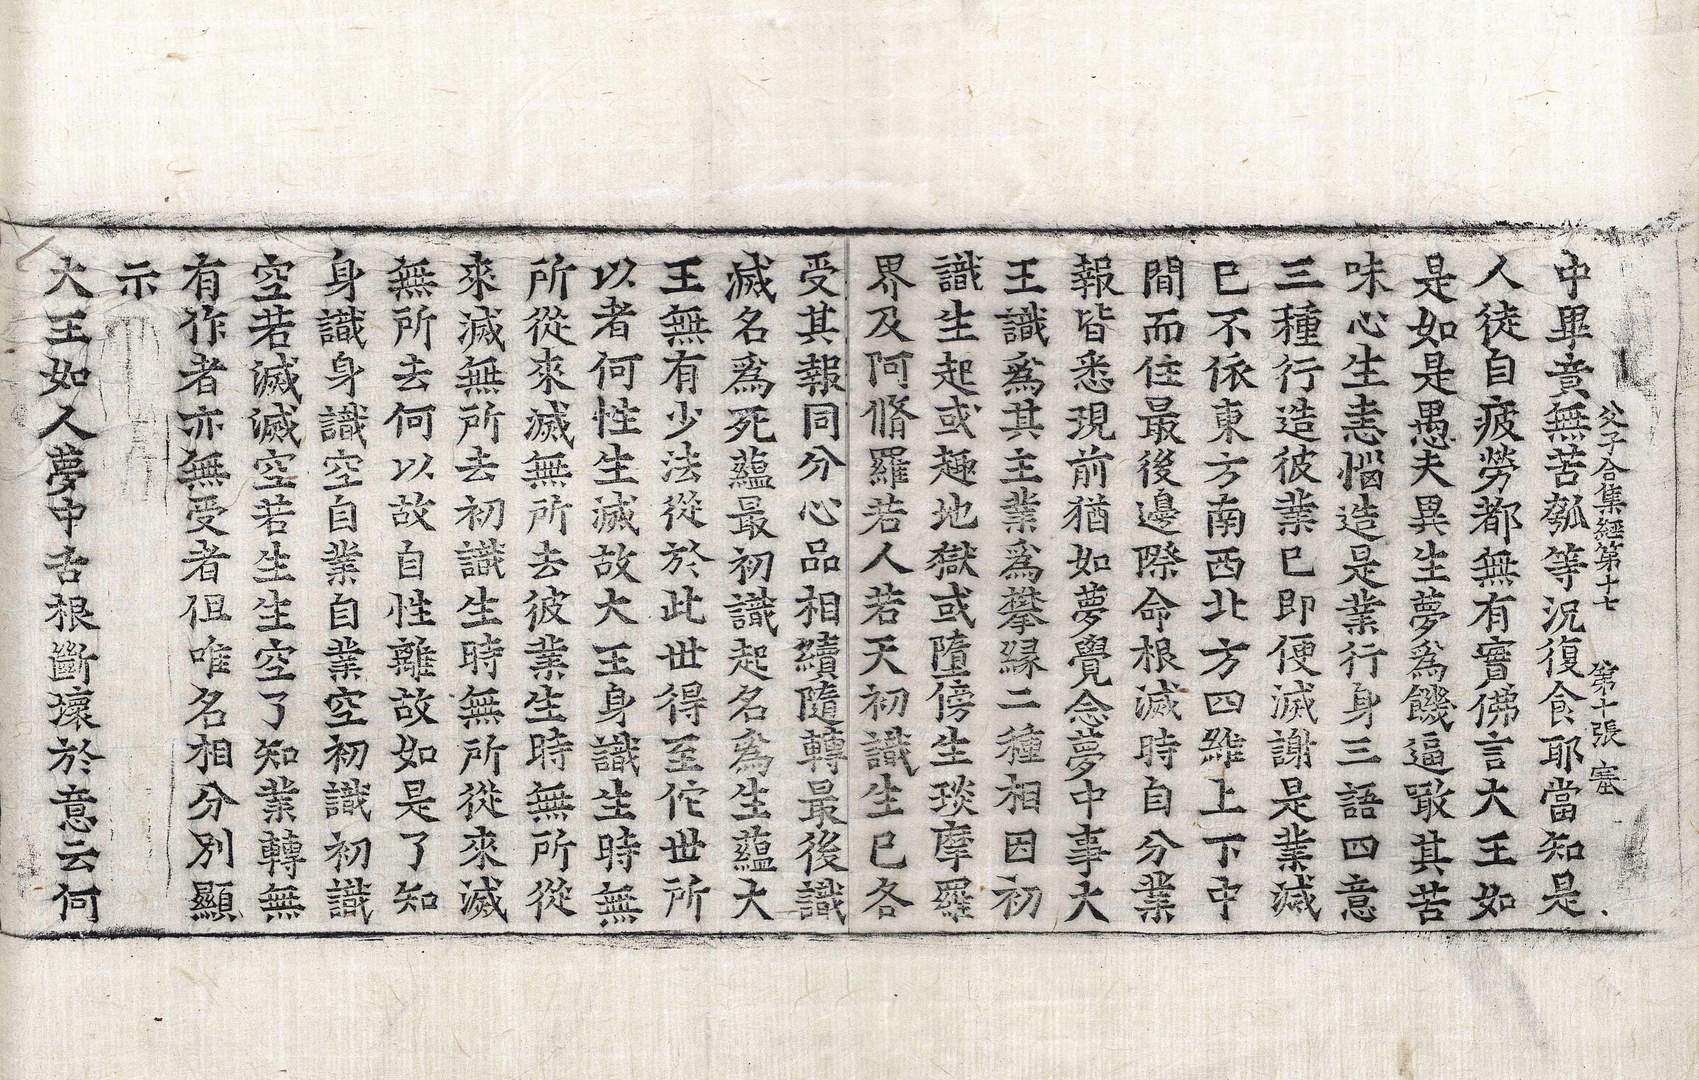 父子合集經第十七 第十張 塞
中畢竟無苦瓠等況復食耶當知是
人徒自疲勞都無有實佛言大王如
是如是愚夫異生夢爲饑逼噉其苦
味心生恚惱造是業行身三語四意
三種行造彼業已即便滅謝是業滅
已不依東方南西北方四維上下中
間而住最後邊際命根滅時自分業
報皆悉現前猶如夢覺念夢中事大
王識爲其主業爲攀緣二種相因初
識生起或趣地獄或墮傍生琰摩羅
界及阿脩羅若人若天初識生已各
受其報同分心品相續隨轉最後識
滅名爲死蘊最初識起名爲生蘊大
王無有少法從於此世得至佗世所
以者何性生滅故大王身識生時無
所從來滅無所去彼業生時無所從
來滅無所去初識生時無所從來滅
無所去何以故自性離故如是了知
身識身識空自業自業空初識初識
空若滅滅空若生生空了知業轉無
有作者亦無受者但唯名相分別顯
示
大王如人夢中舌根斷壞於意云何